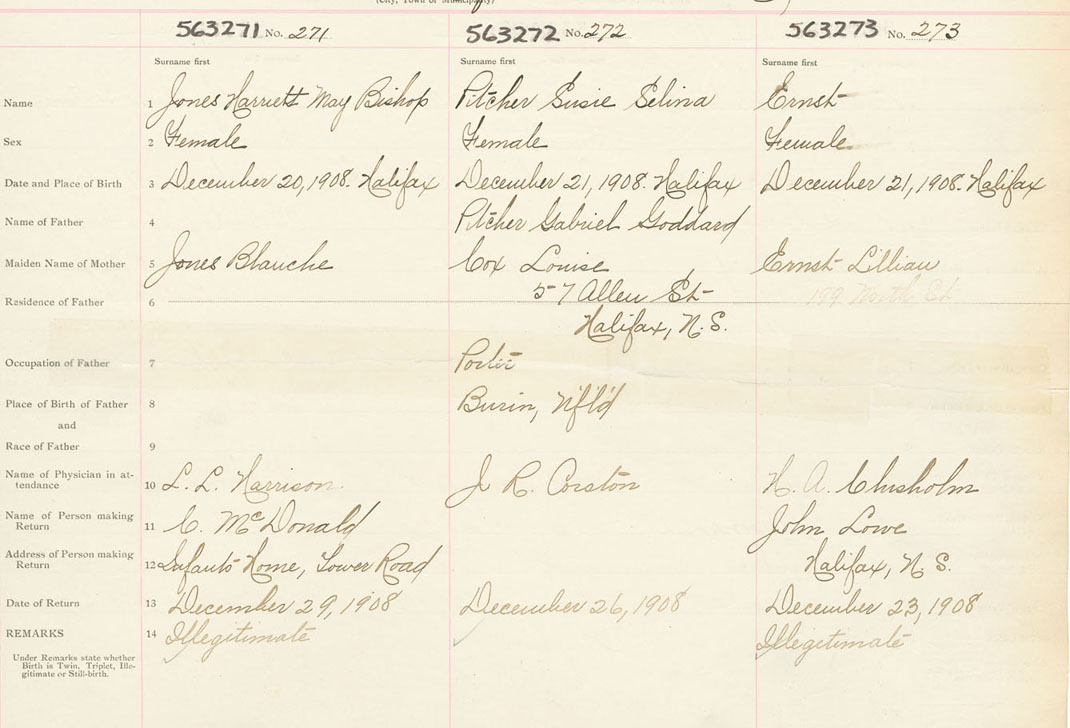 (City, Town or Municipality)
563271 No. 271 563272 No. 272 563273 No. 273
Surname first Surname first Surname first
Name 1 Jones Harriett May Bishop Pitcher Susie Selina Ernst
Sex 2 Female Female Female
Date and Place of Birth 3 December 20, 1908. Halifax December 21, 1908. Halifax December 21, 1908. Halifax
Name of Father 4 Pitcher Gabriel Goddard
Maiden Name of Mother 5 Jones Blanche Cox Louise Ernst Lillian
Residence of Father 6 57 Allen St 199 North St
Halifax, N.S.
Occupation of Father 7 Porter
Place of Birth of Father 8 Burin, Nfld
and
Race of Father 9
Name of Physician in at-
tendance 10 L. L. Harrison. J R. Corston H. A. Chisholm
Name of Person making
Return 11 C. McDonald John Lowe
Address of Person making
Return 12 Infants Home, Tower Road Halifax, N. S.
Date of Return 13 December 29, 1908 December 26, 1908 December 23, 1908
REMARKS 14 Illegitimate Illegitimate
Under Remarks state whether
Birth is Twin, Triplet, Ille-
gitimate or Still-birth.